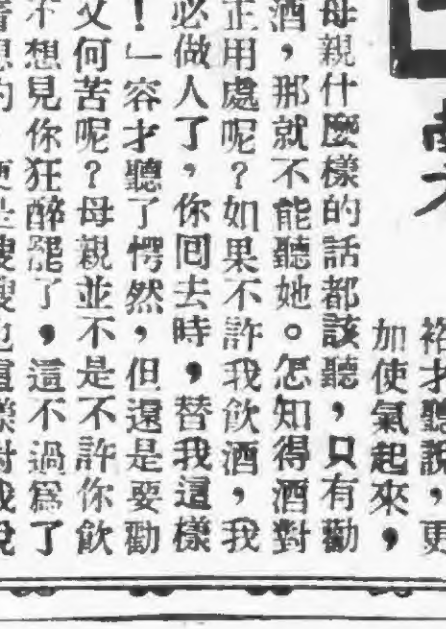 裕才聽說，更
加使氣起來，
母親什麼樣的話都該聽，只有勸
酒，那就不能聽她。怎知得酒對
正用處呢？如果不許我飲酒，我
必做人了，你囘去時，替我這樣
！」容才聽了愕然，但還是要勸
又何苦呢？母親並不是不許你飲
不想見你狂醉罷了，這不過爲了
這樣對我說